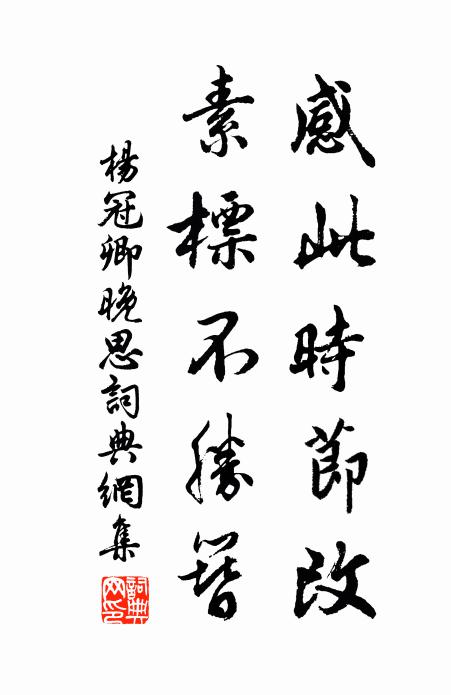 感此時節改
素標不勝簪
楊冠卿晚思詞典網集
詞典網印